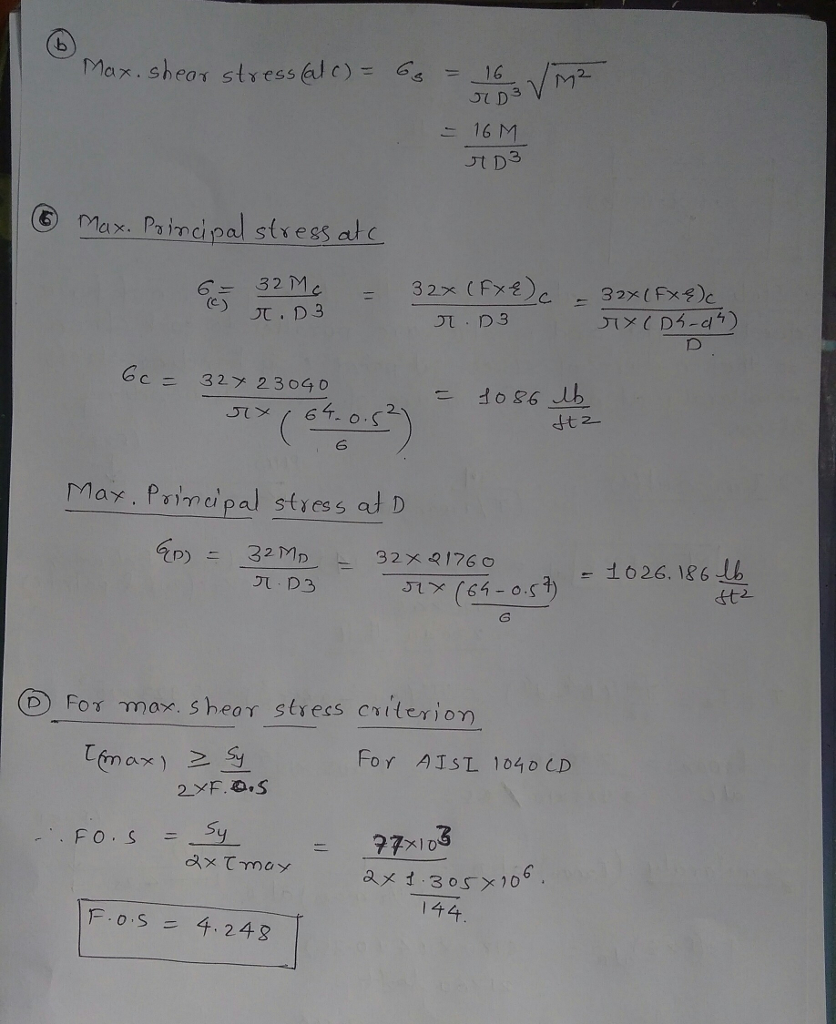 (b)
Max. shear stress (at c) = 6s = 16/πD3 √M2
= 16M/πD3
(6) Max. Principal stress at c
6(c) = 32Mc/π.D3 = 32×(F×ξ)c/π.D3 = 32×(F×ξ)c/π×(D4-d4)/D
6c = 32×23040/π×(64-0.52/6) = 1086 lb/ft2
Max. Principal stress at D
6(D) = 32MD/π.D3 = 32×21760/π×(64-0.54)/6 = 1026.186 lb/ft2
(D) For max. shear stress criterion
τ(max) ≥ Sy/2×F.O.S For AISI 1040 CD
∴ FO.S = Sy/2×τmax = 77×103/2×1.305×106/144.
F.O.S = 4.248